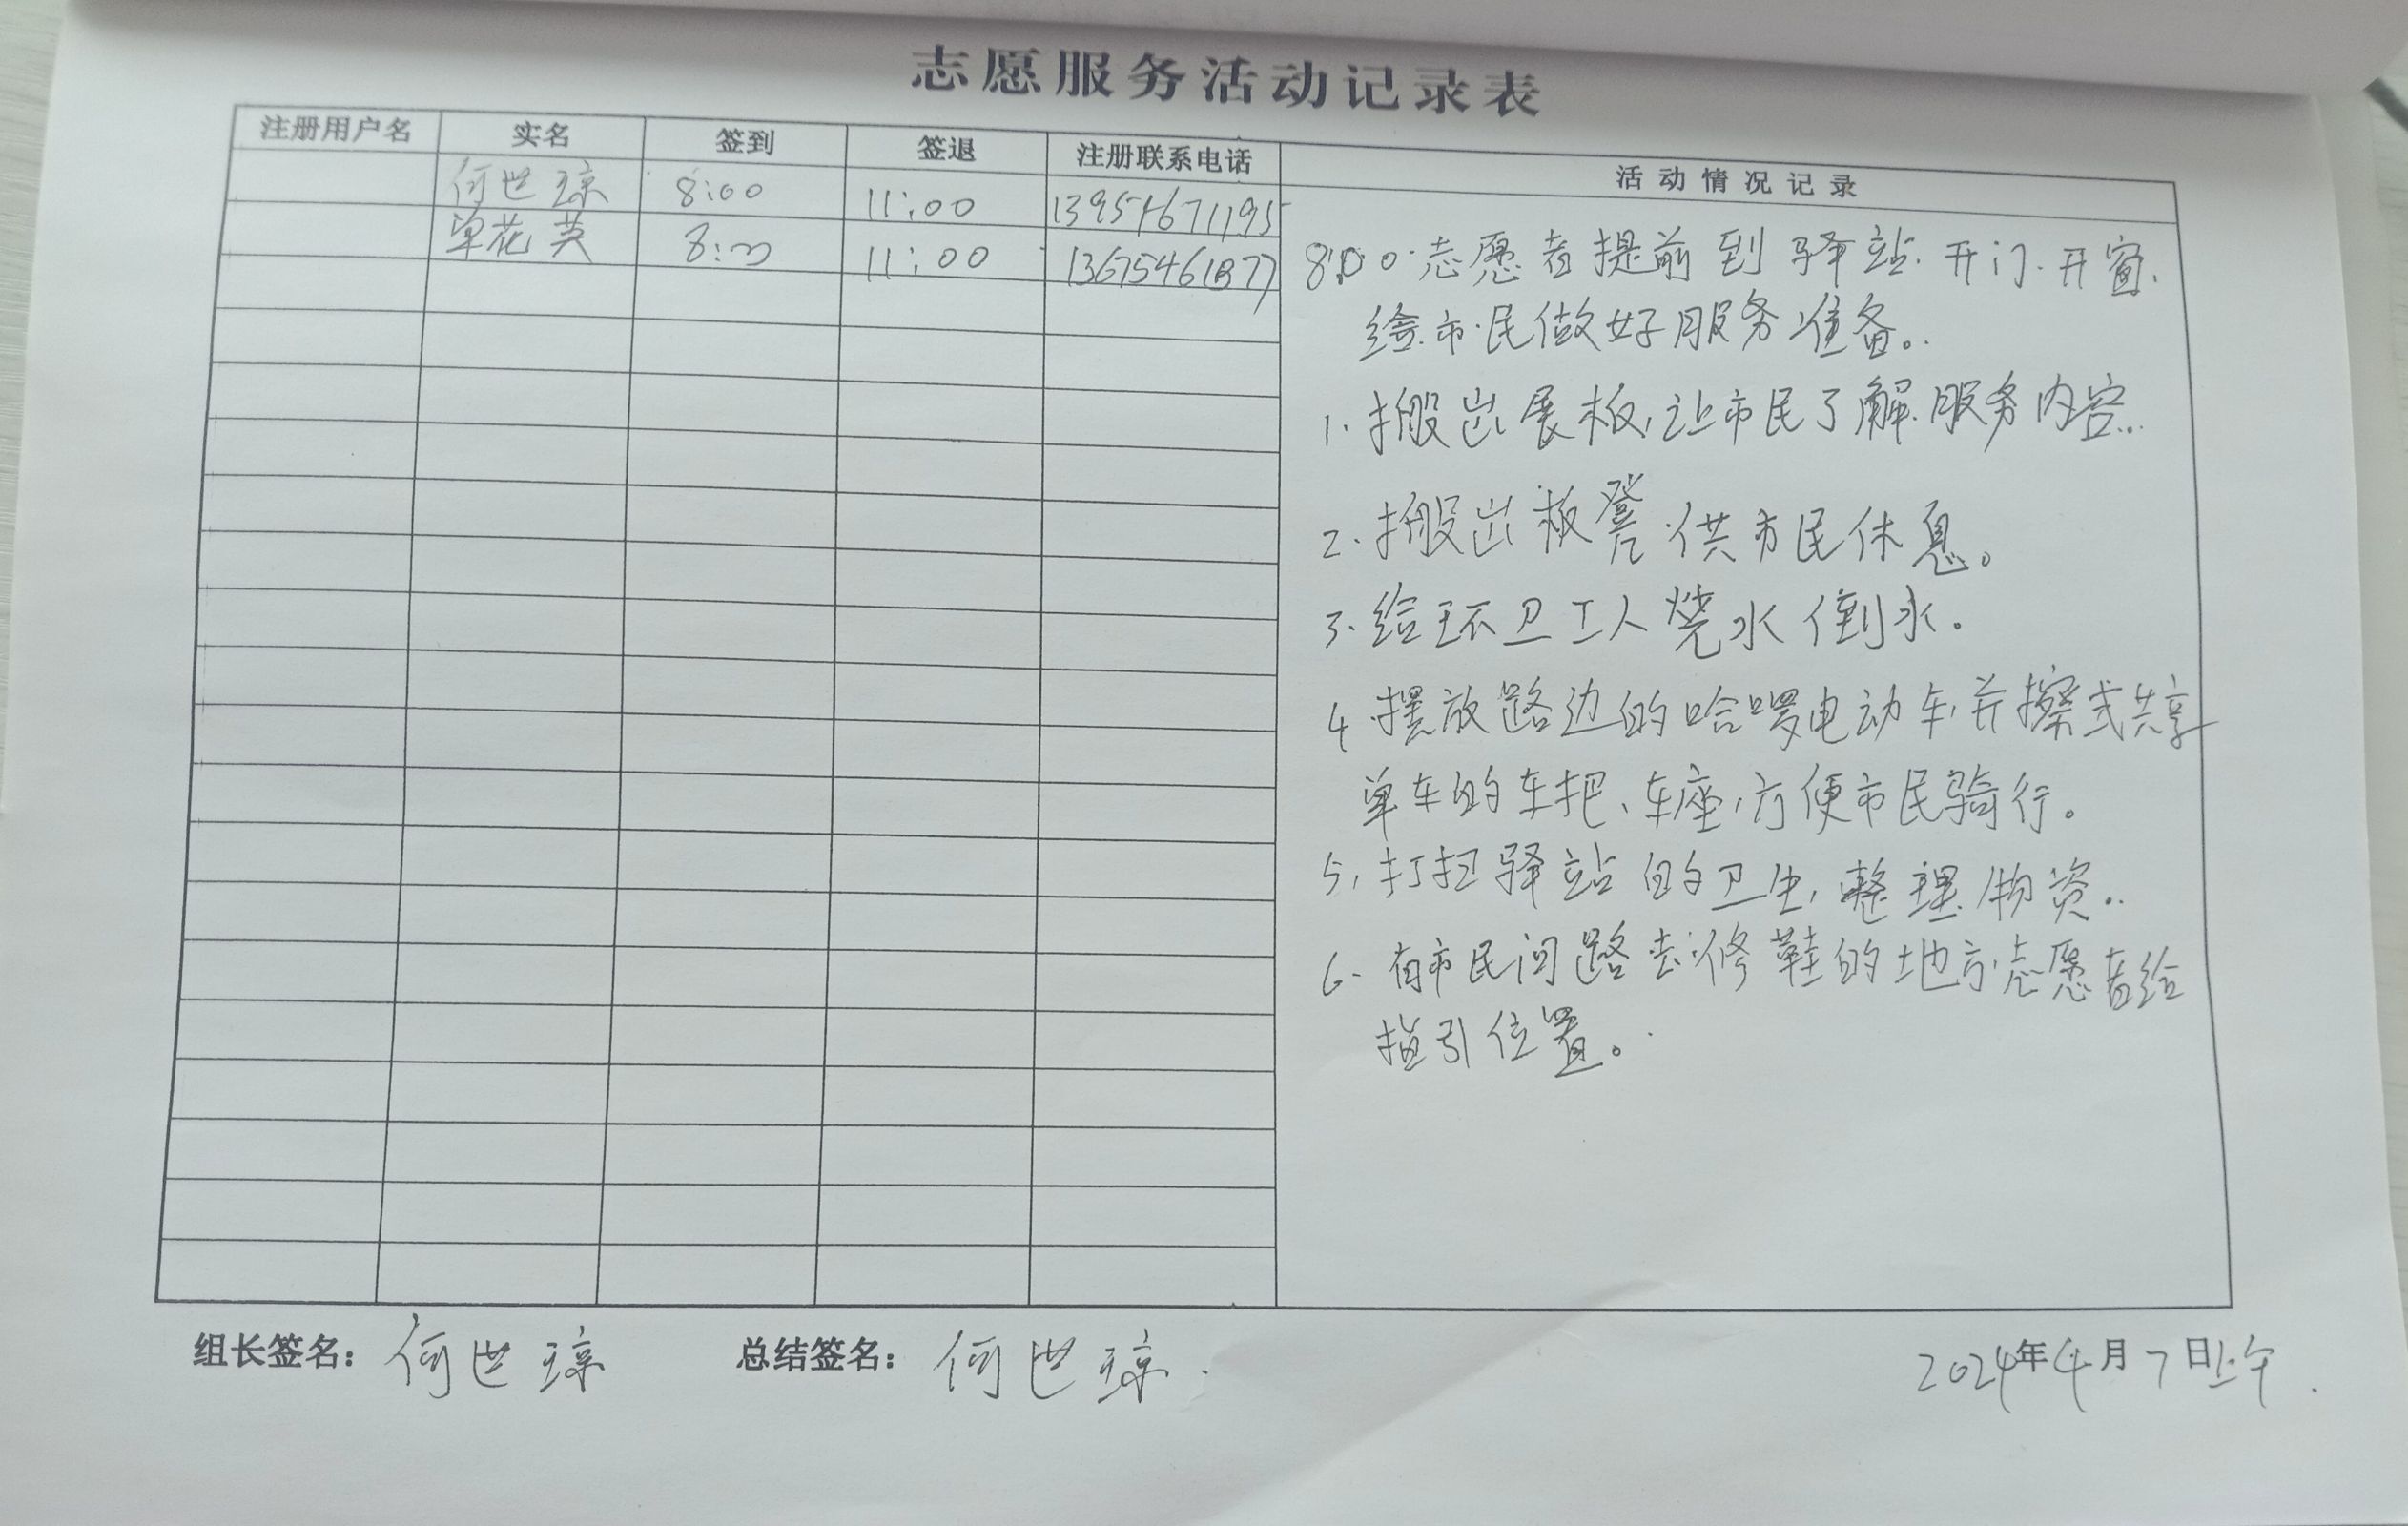 志愿服务活动记录表
注册用户名 实名 签到 签退 注册联系电话 活动情况记录
何世琼 8:00 11:00 13951671195
单花英 8:00 11:00
8:00 志愿者提前到驿站.开门.开窗.
给市民做好服务准备。
1.搬出展板,让市民了解服务内容.
2.搬出板凳供市民休息。
3.给环卫工人烧水倒水.
4.摆放路边的哈啰电动车,并擦式共享
单车的车把、车座,方便市民骑行。
5,打扫驿站的卫生,整理物资.
6.有市民问路去修鞋的地方.志愿者给
指引位置。
组长签名:何世琼 总结签名:何世琼. 2024年4月7日上午.